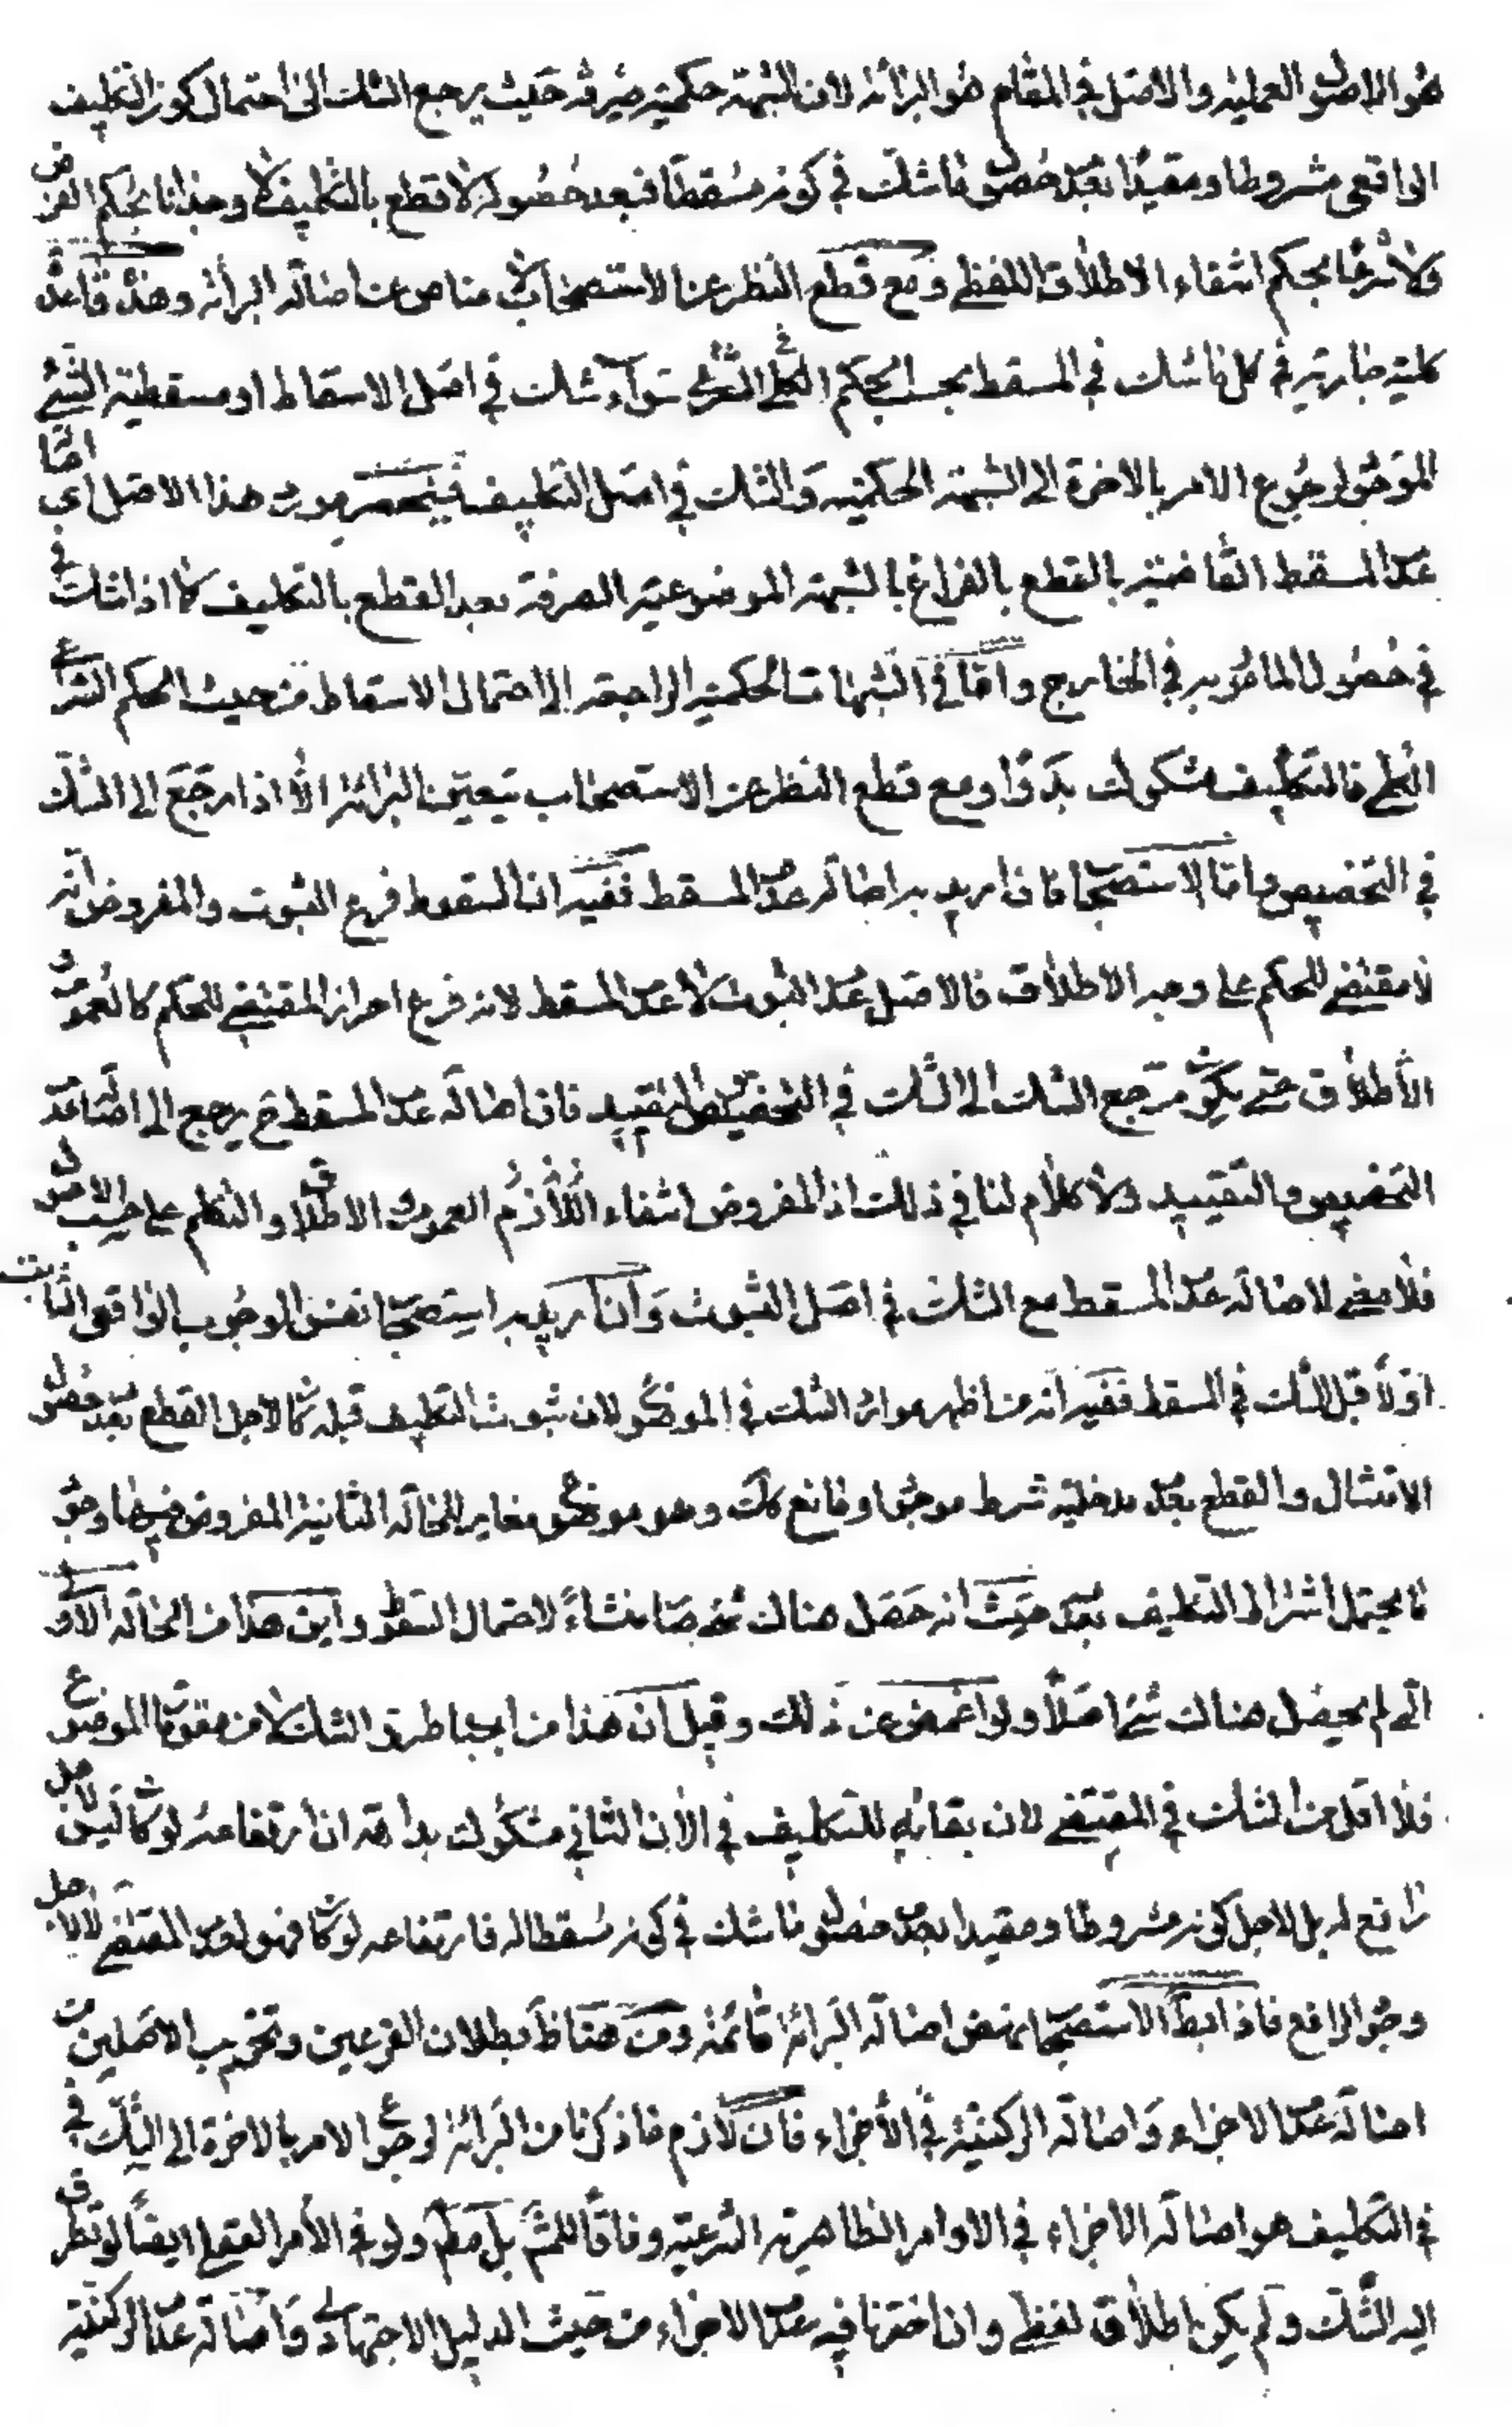 هو الاصول العملية والاصل في المقام هو البرائة لان الشبهة حكمية صرفة حيث يرجع الشك الى احتمال كون التكليف
الواقعى مشروطا ومقيدا بعدم حصول ما شك في كونه مسقطا فبعد حصوله لا قطع بالتكليف لا وجدانا بحكم الفرض
ولا شرعا بحكم انتفاء الاطلاق اللفظي ومع قطع النظر عن الاستصحاب لا مناص عن اصالة البرائة وهذه قاعدة
كلية جارية في كل ما شك في المسقط بحسب الحكم الكلي الشرعي سواء شك في اصل الاسقاط او مسقطية الشيء
الموجود لرجوع الامر بالاخرة الى الشبهة الحكمية والشك في اصل التكليف فينحصر مورد هذا الاصل اي اصالة
عدم المسقط القاضية بالقطع بالفراغ بالشبهة الموضوعية الصرفة بعد القطع بالتكليف كما اذا شك في
في حصول المامور به في الخارج واما في الشبهات الحكمية الراجعة الى احتمال الاسقاط من حيث الحكم الشرعي
الكلي فالتكليف مشكوك بدوا ومع قطع النظر عن الاستصحاب يتعين البرائة الا اذا رجع الى الشك
في التخصيص واما الاستصحاب فان اريد به اصالة عدم المسقط ففيه ان السقوط فرع الثبوت والمفروض انه
لا مقتضي للحكم على وجه الاطلاق فالاصل عدم الثبوت لا عدم المسقط لانه فرع احراز المقتضي للحكم كالعموم و
الاطلاق حتى يكون مرجع الشك الى الشك في التخصيص والتقييد فان اصالة عدم المسقط ح يرجع الى اصالة عدم
التخصيص والتقييد ولا كلام لنا في ذلك اذ المفروض انتفاء اللازم العموم والاطلاق والتكلم على حسب الاصول
فلا معنى لاصالة عدم المسقط مع الشك في اصل الثبوت وان اريد به استصحاب نفس الوجوب الواقعي الثابت
اولا قبل الشك في المسقط ففيه انه من اظهر موارد الشك في الموضوع لان ثبوت التكليف قبله كان لاجل القطع بعدم حصول
الامتثال والقطع بعدم مدخلية شرط موجود او مانع كك وهو موضوع مغاير للحالة الثانية المفروض فيها وجود
ما يحتمل اشتراط التكليف بعدمه حيث انه حصل هناك شيء صار منشاء لاحتمال السقوط واين هذا من الحالة الاولى
التي لم يحصل هناك شيء اصلا ولو اغمض عن ذلك وقيل ان هذا من اسباب طرو الشك لا من مقومات الموضوع
فلا اقل من الشك في المقتضي لان بقائه للتكليف في الان الثاني مشكوك بداهة ان ارتفاعه لو كان ليس لاجل
رافع له بل لاجل كونه مشروطا ومقيدا بعدم حصول ما شك في كونه مسقطا له فارتفاعه لو كان فهو لعدم المقتضي لا لاجل
وجود الرافع فاذا بطل الاستصحاب نهض اصالة البرائة قائمة ومن هنا ظ بطلان الفرعين وتخريب الاصلين من
اصالة عدم الاجزاء واصالة الركنية في الاجزاء فان لازم ما ذكرنا من البرائة لرجوع الامر بالاخرة الى الشك في
في التكليف هو اصالة الاجزاء في الاوامر الظاهرية الشرعية وفاقا للمش بل مطم ولو في الأمر العقلي ايضا لو تطرق
اليه الشك ولم يكن اطلاق لفظي وان اخترنا فيه عدم الاجزاء من حيث الدليل الاجتهادي واصالة عدم الركنية